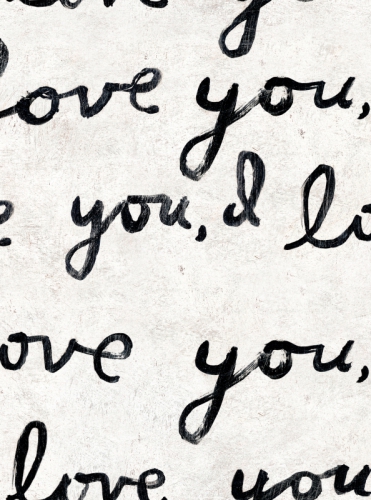 love you,
you, I lo
ove you,
love you